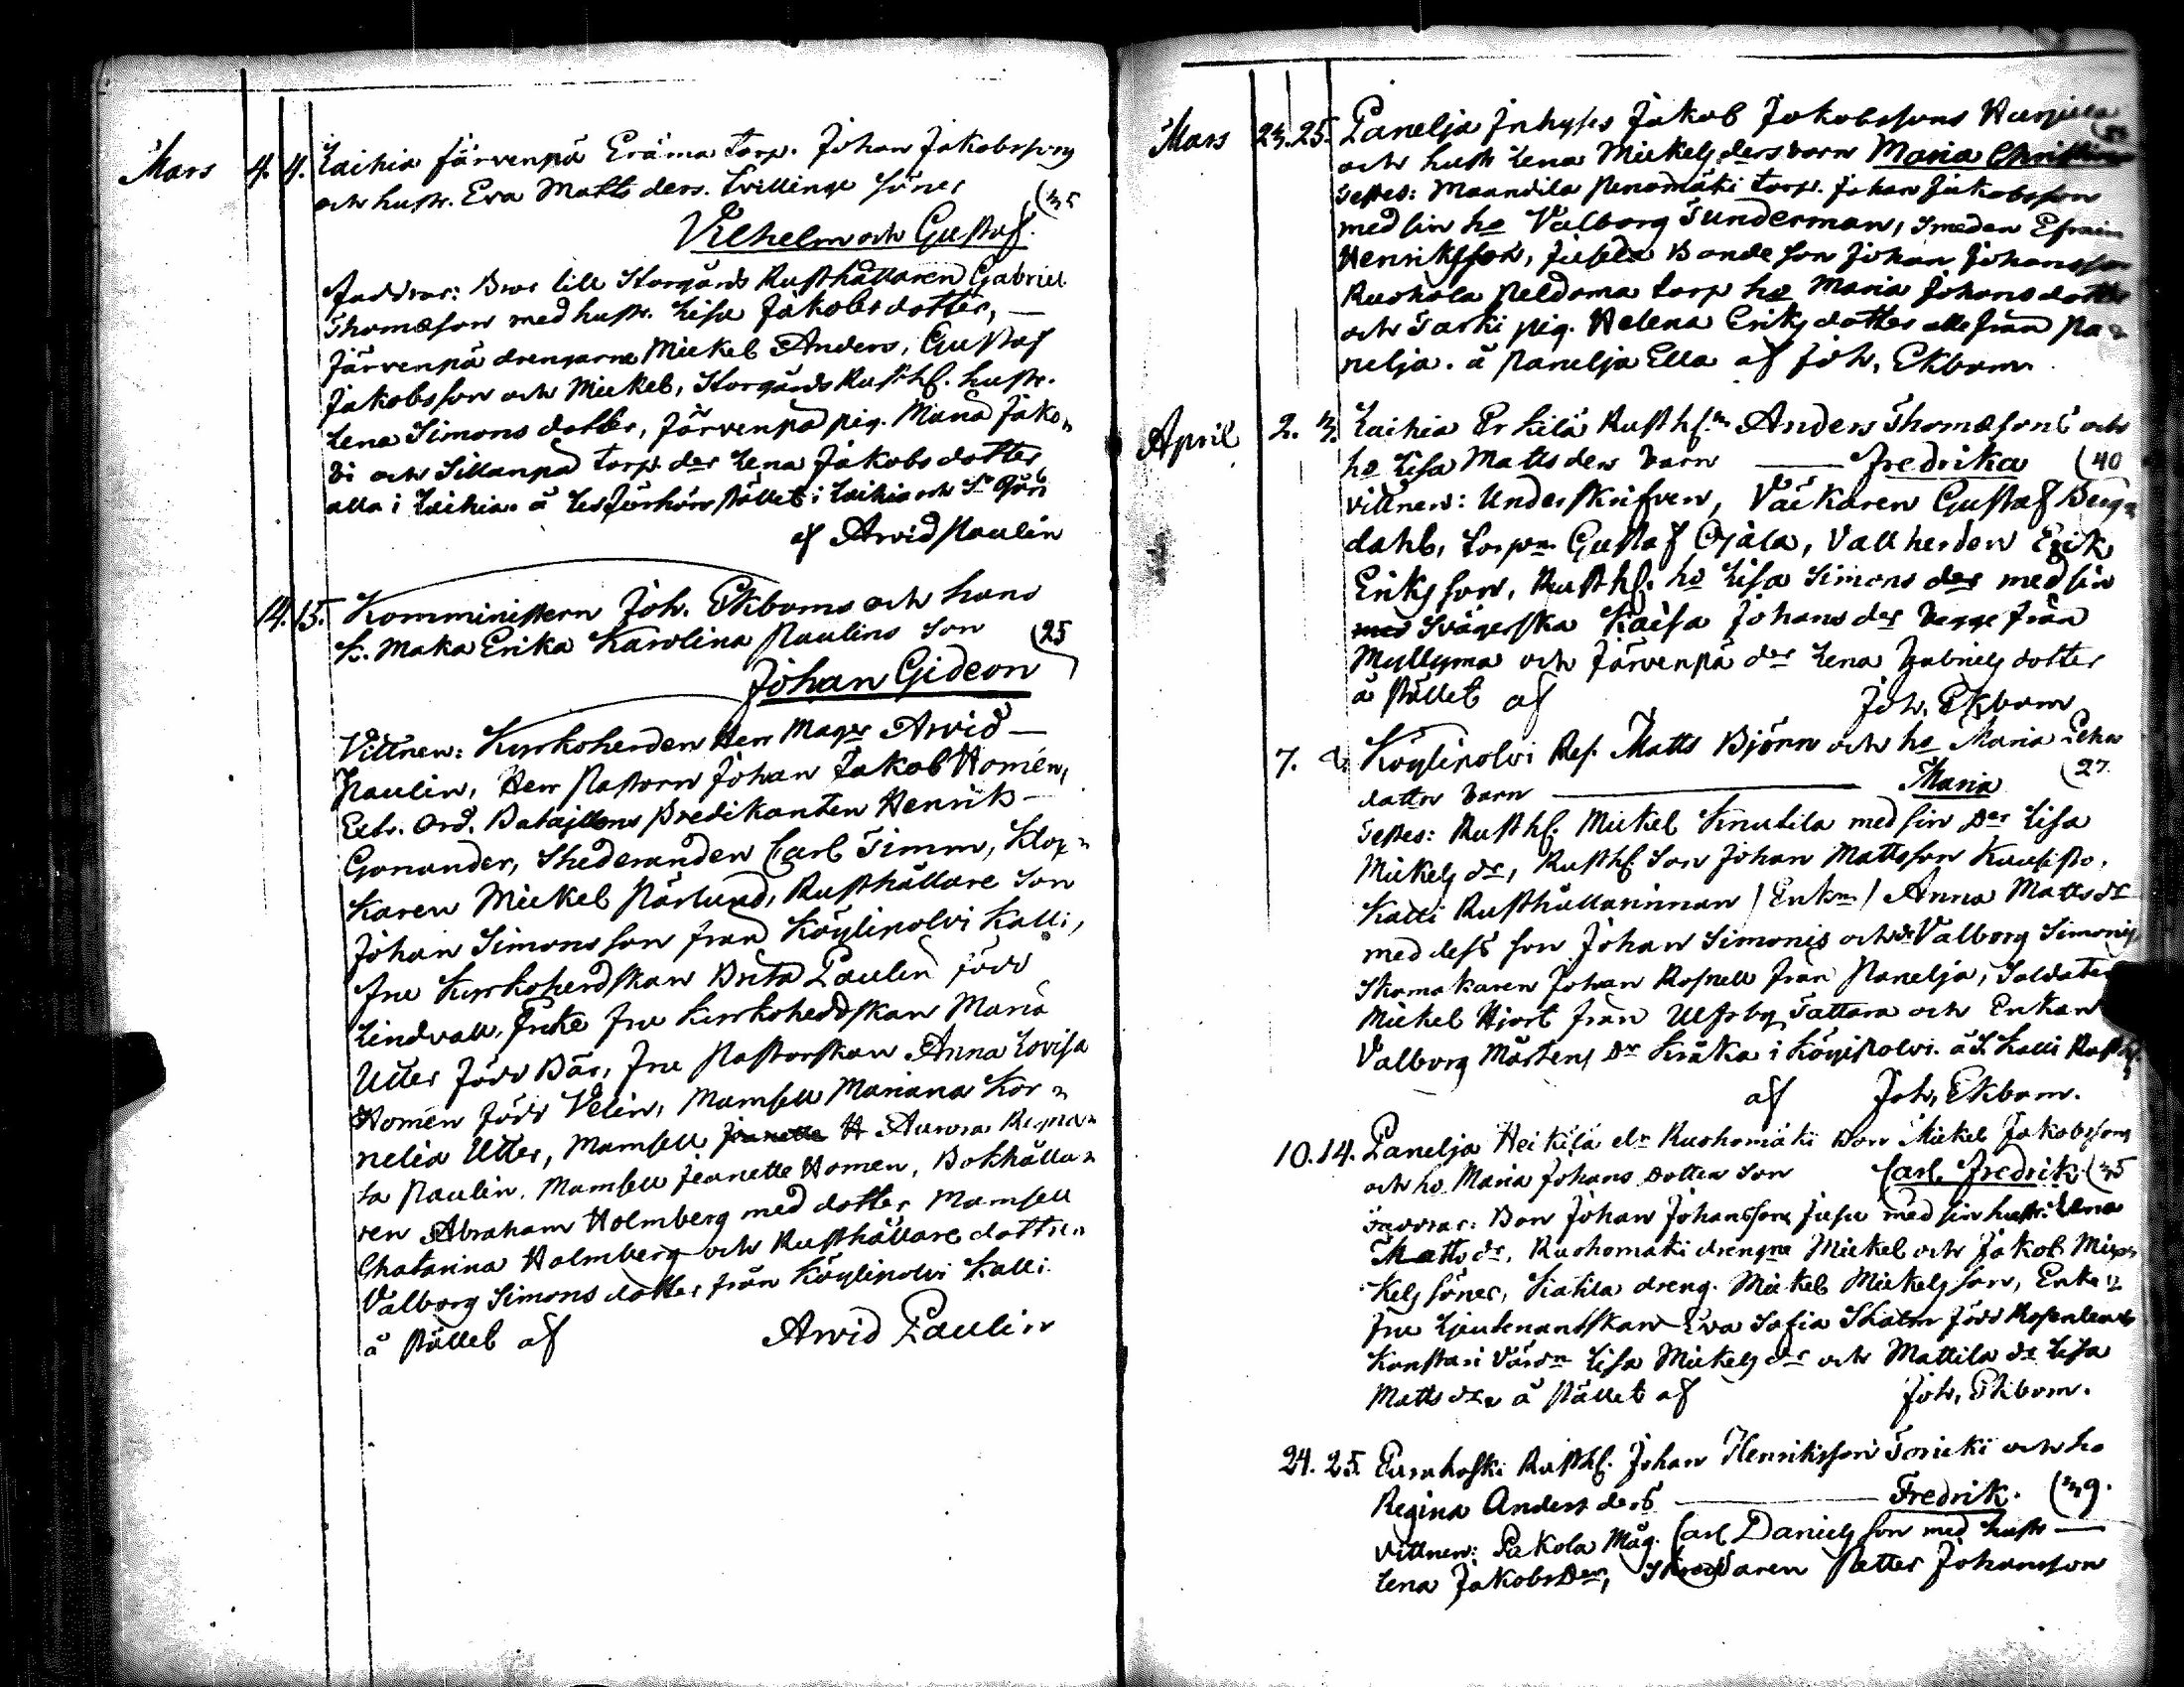 Mars 4. 4. Laihia Järvenpä Eräma torp. Johan Jakobssons
och hustr. Eva Matts ders. tvillinge söner
(35
Vilhelm och Gustaf.
Faddrar: Bror till Storgårds Rusthållaren Gabriel
Thomæson med hustr. Lisa Jakobs dotter, —
Järvenpä drengarne Mickel Anders, Gustaf
Jakobsson och Mickel, Storgårds Rusth. hustr.
Lena Simons dotter, Järvenpä pig. Maria Jako-
bi och Sillanpä torp. der Lena Jakobs dotter
alla i Laihia. å Läsförhörs stället i Laihia och
af Arvid Paulin
14. 15. Komministern Joh. Ekboms och hans
k. Maka Erika Karolina Paulins Son (25
Johan Gideon
Vittnen: Kyrkoherden Herr Magr Arvid —
Paulin, Herr Pastorn Johan Jakob Homén,
Extr. Ord. Bataillons Predikanten Henrik —
Gonander, Studeranden Carl Timm, Kloc-
karen Mickel Pärlund, Rusthållare Son
Johan Simonsson från Köylipolvi Kalli,
Fru Kyrkoherdskan Brita Paulin född
Lindvall, Enke Fru Kyrkoherdskan Maria
Utter född Bär, Fru Pastorskan Anna Lovisa
Homén född Velin, Mamsell Mariana Kor-
nelia Utter, Mamsell Jeanette H Aurora Regina-
ta Paulin. Mamsell Jeanette Homen, Bokhålla-
ren Abraham Holmberg med dotter Mamsell
Chatarina Holmberg och Rusthållare dottren
Valborg Simons dotter från Köylipolvi Kalli
å stället af Arvid Paulin
Mars 23. 25. Panelja Inhyses Jakob Jakobssons
och hustr Lena Mickels ders barn Maria Christina
Testes: Maandila Penomäki torp. Johan Jakobsson
med sin ho Valborg Sunderman, Smeden Efraim
Henriksson, Bonde son Johan Johansson
Ruohola Peldoma torp ho Maria Johans dotter
och Sarki pig. Helena Eriks dotter alla från Pa-
nelja. å Panelja Ella af Joh. Ekbom.
April 2. 3. Laihia Erkilä Rusth. Anders Thomæsons och
ho Lisa Matts ders barn — Fredrika (40
Vittnen: Underskrifven, Väfkaren Gustaf Berg-
dahl, torpn Gustaf Ojala, Vallherden Erik
Eriksson, Rusth. ho Lisa Simons der med sin
med Svägerska Kaisa Johans der begge från
Myllyma och Järvenpä der Lena Gabriels dotter
å stället af Joh. Ekbom
7. Köylipolvi Res. Matts Björn och ho Maria
dotter barn — Maria (27
Testes: Rusth. Mickel Knutila med sin Der Lisa
Mickels dr, Rusth. Son Johan Mattsson Kuusisto,
Kalli Rusthållarinnan / Enkn / Anna Matts dr
med dess son Johan Simonis och dr Valborg Simonis
Skomakaren Johan Rosnell från Panelja, Soldaten
Mickel Hjort från Ulfsby Tattara och Enkan
Valborg Mårtens Dr Kråka i Köylipolvi. å S. Kalli Rusth.
af Joh. Ekbom.
10. 14. Panelja Heikilä elr Ruohomäki Bon Mickel Jakobssons
och ho Maria Johans Dotter Son Carl Fredrik (35
Faddrar: Bon Johan Johansson med sin hustr: Lena
Matts dr, Ruohomäki drengne Mickel och Jakob Mic-
kels söner, Katila dreng. Mickel Mickels son, Enke
Fru Lieutenantskan Eva Sofia född
Konstari Värdn Lisa Mickels dr och Mattila dr Lisa
Matts dr å stället af Joh. Ekbom.
24. 25. Eurakoski Rusth. Johan Henriksson och ho
Regina Anders ders — Fredrik. (39.
Vittnen: Pakola Måg. Carl Daniels son med hustr —
Lena Jakobs Der, Skräddaren Petter Johansson